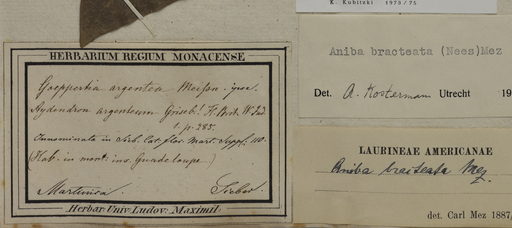 K. Kubitzki 1973/75
HERBARIUM REGIUM MONACENSE
Goeppertia argentea Meissn.
Aydendron argenteum Griseb.! Fl. Brit. W. Ind.
p. 285.
Innominata in Sieb. Cat. flor. Mart. Suppl. 110
(Hab. in mont. ins. Guadeloupe.)
Martinica. Sieber.
Herbar. Univ. Ludov. Maximil.
Aniba bracteata (Nees)Mez
Det. A. Kostermans Utrecht 19
LAURINEAE AMERICANAE
Aniba bracteata Mez
det. Carl Mez 1887/